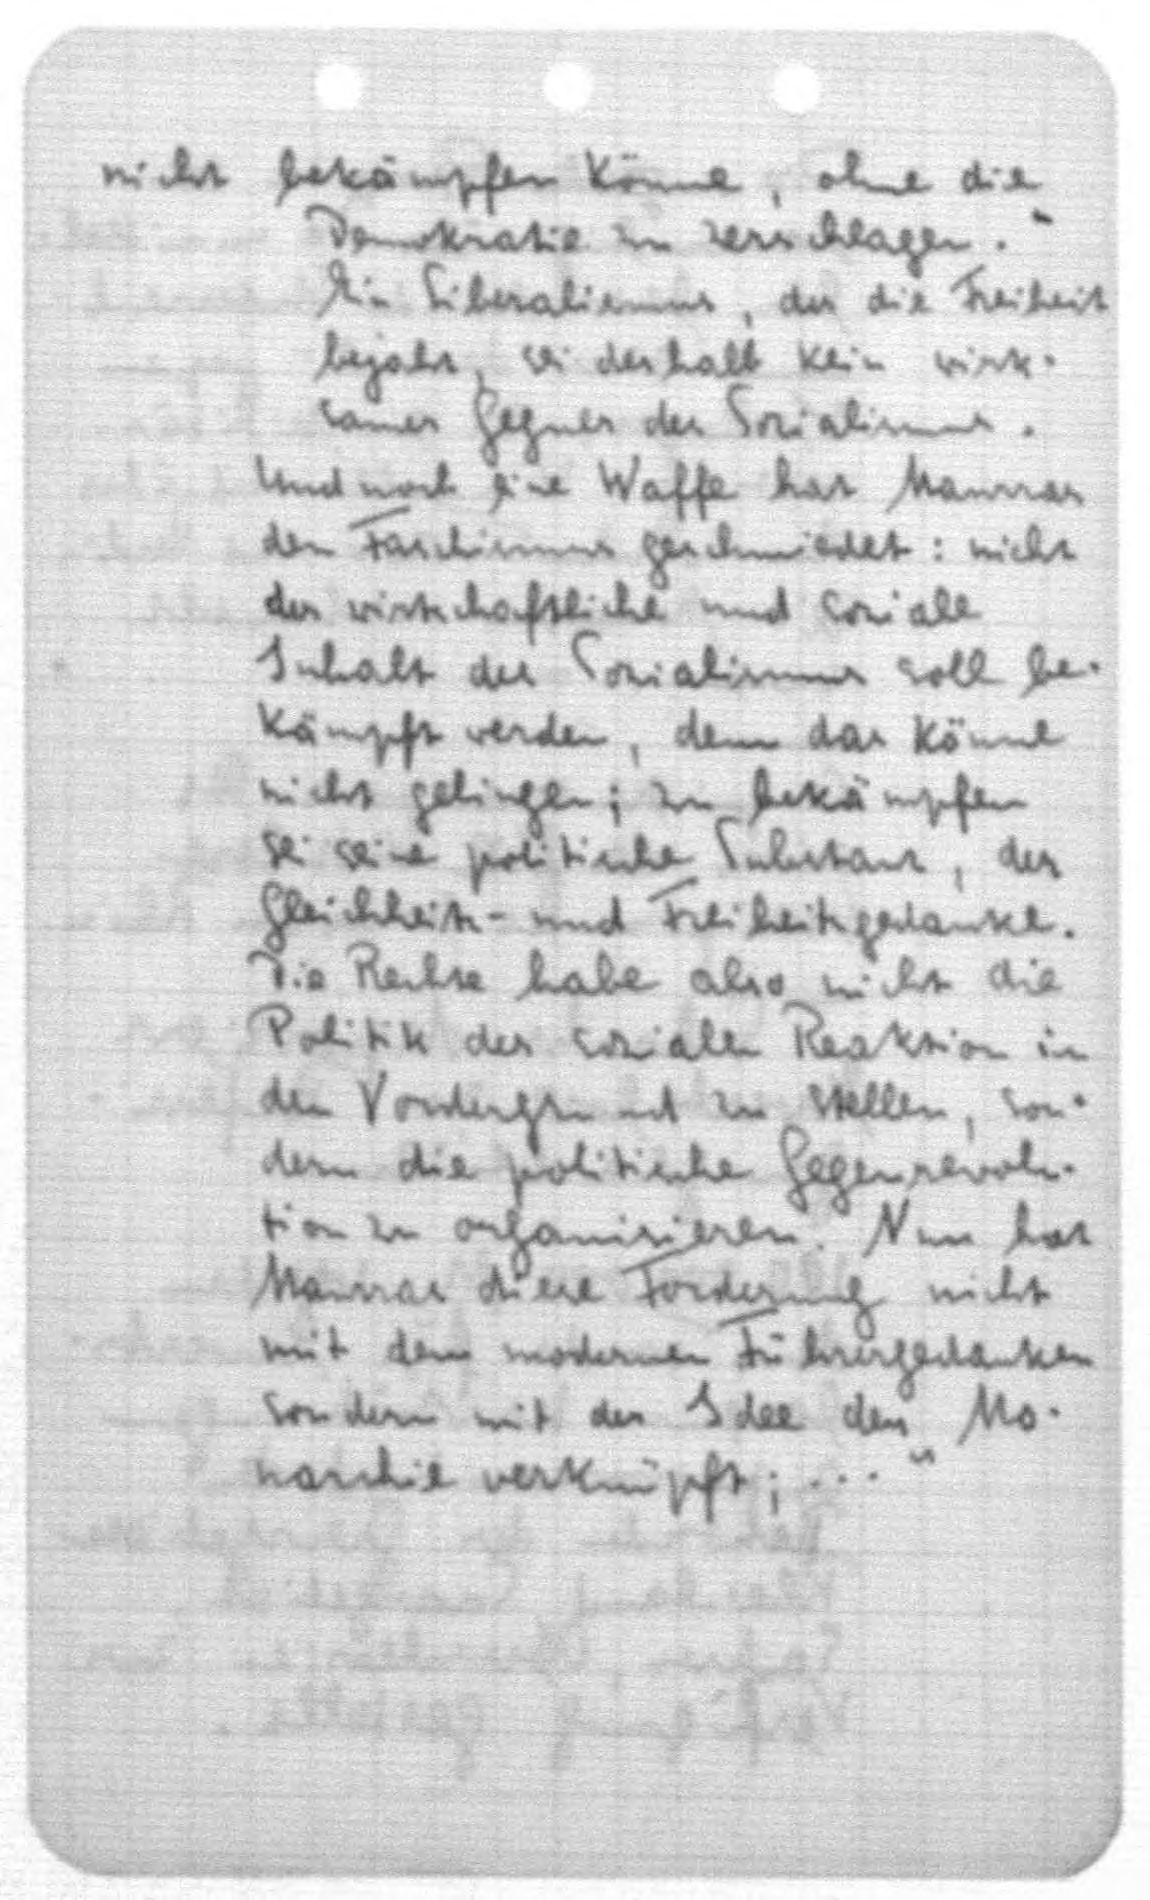 nicht bekämpfen könne, ohne die
Demokratie zu zerschlagen."
Ein Liberalismus, der die Freiheit
bejaht, sei deshalb kein wirk-
samer Gegner des Sozialismus.
Und noch eine Waffe hat Maurras
dem Faschismus geschmiedet: nicht
der wirtschaftliche und soziale
Inhalt des Sozialismus soll be-
kämpft werden, denn das könne
nicht gelingen; zu bekämpfen
sei seine politische Substanz, der
Gleichheits- und Freiheitsgedanke.
Die Rechte habe also nicht die
Politik der sozialen Reaktion in
den Vordergrund zu stellen, son-
dern die politische Gegenrevolu-
tion zu organisieren. Nun hat
Maurras diese Forderung nicht
mit dem modernen Führergedanken
sondern mit der Idee der Mo-
narchie verknüpft; ..."